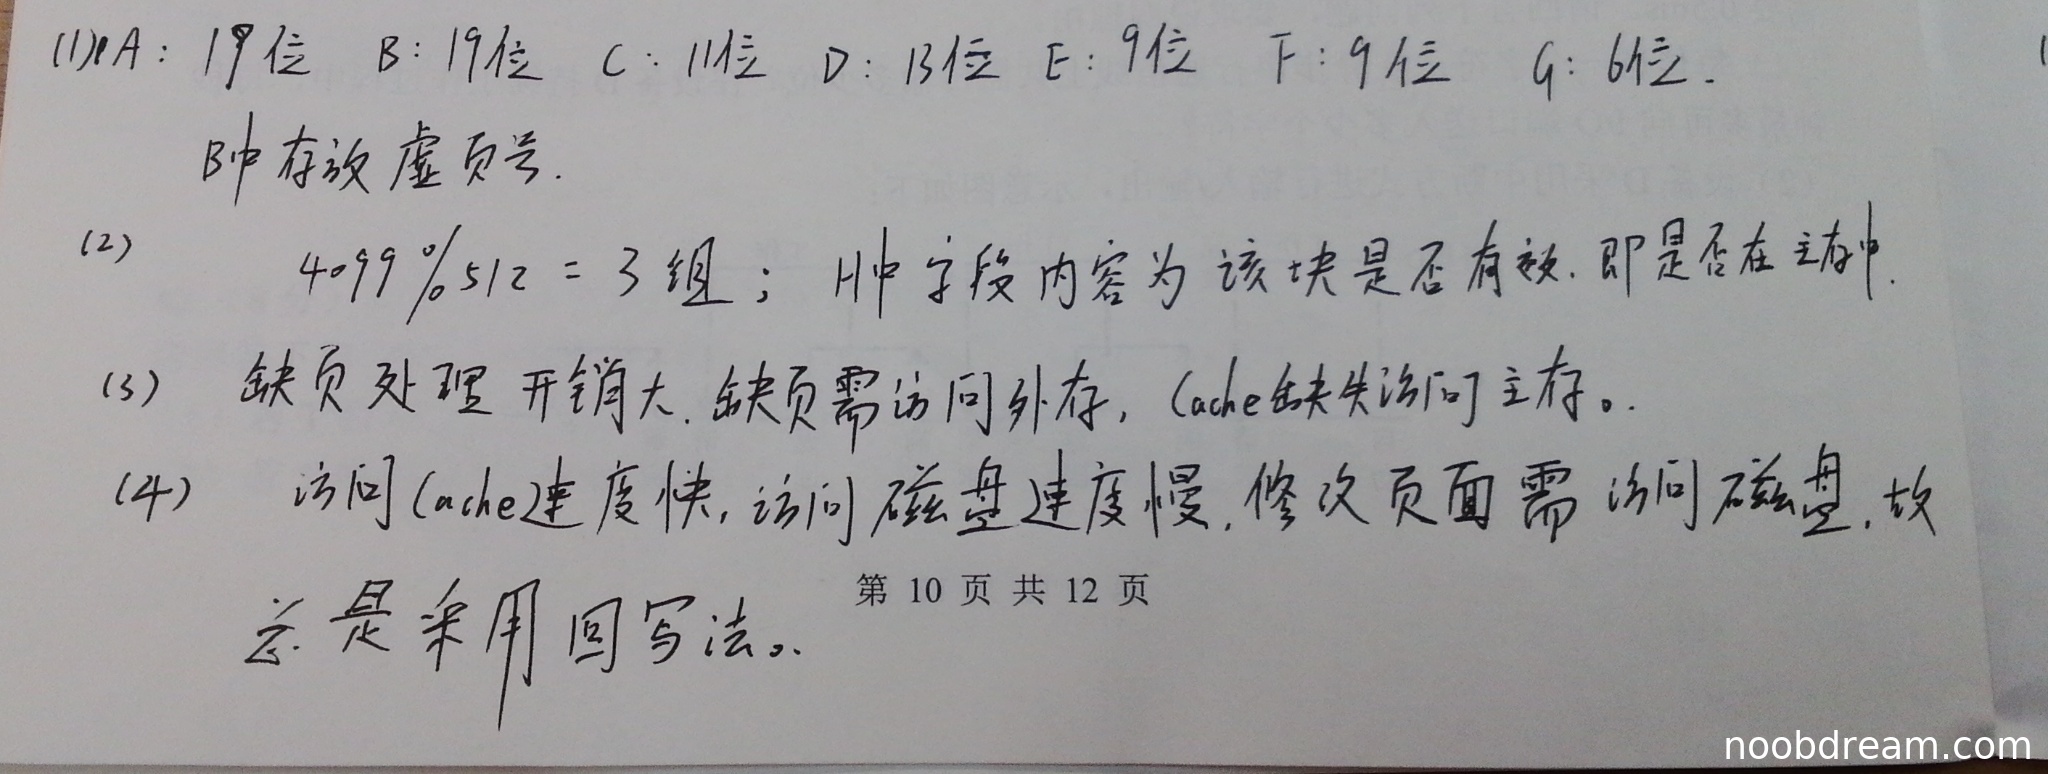 (1) A: 19位 B: 19位 C: 11位 D: 13位 E: 9位 F: 9位 G: 6位.
B中存放虚页号.
(2) 4099%512 = 3组; H中字段内容为该块是否有效.即是否在主存中.
(3) 缺页处理开销大.缺页需访问外存, Cache缺失访问主存。.
(4) 访问Cache速度快,访问磁盘速度慢,修改页面需访问磁盘,故
总是采用回写法。.
第 10 页 共 12 页
noobdream.com